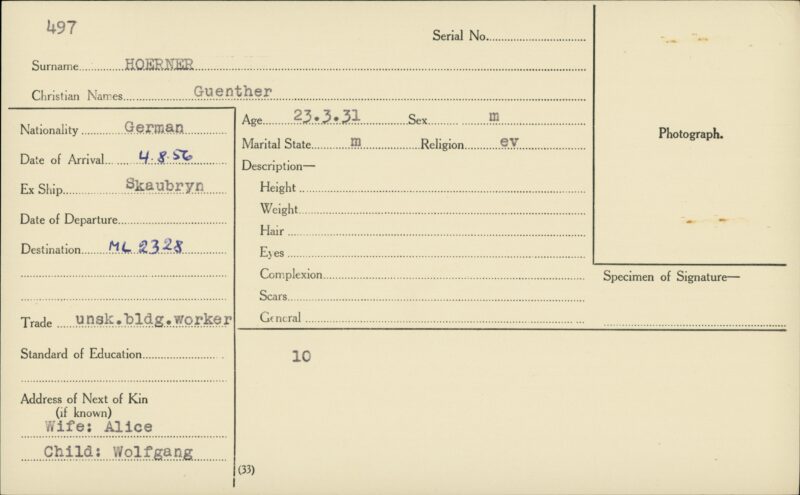 497
Serial No.
Surname HOERNER
Christian Names Guenther
Nationality German
Date of Arrival 4.8.56
Ex Ship Skaubryn
Date of Departure
Destination ML 2328
Trade unsk.bldg.worker
Standard of Education
Address of Next of Kin
(if known)
Wife: Alice
Child: Wolfgang
Age 23.3.31 Sex m
Marital State m Religion ev
Description—
Height
Weight
Hair
Eyes
Complexion
Scars
General
10
(33)
Photograph.
Specimen of Signature—